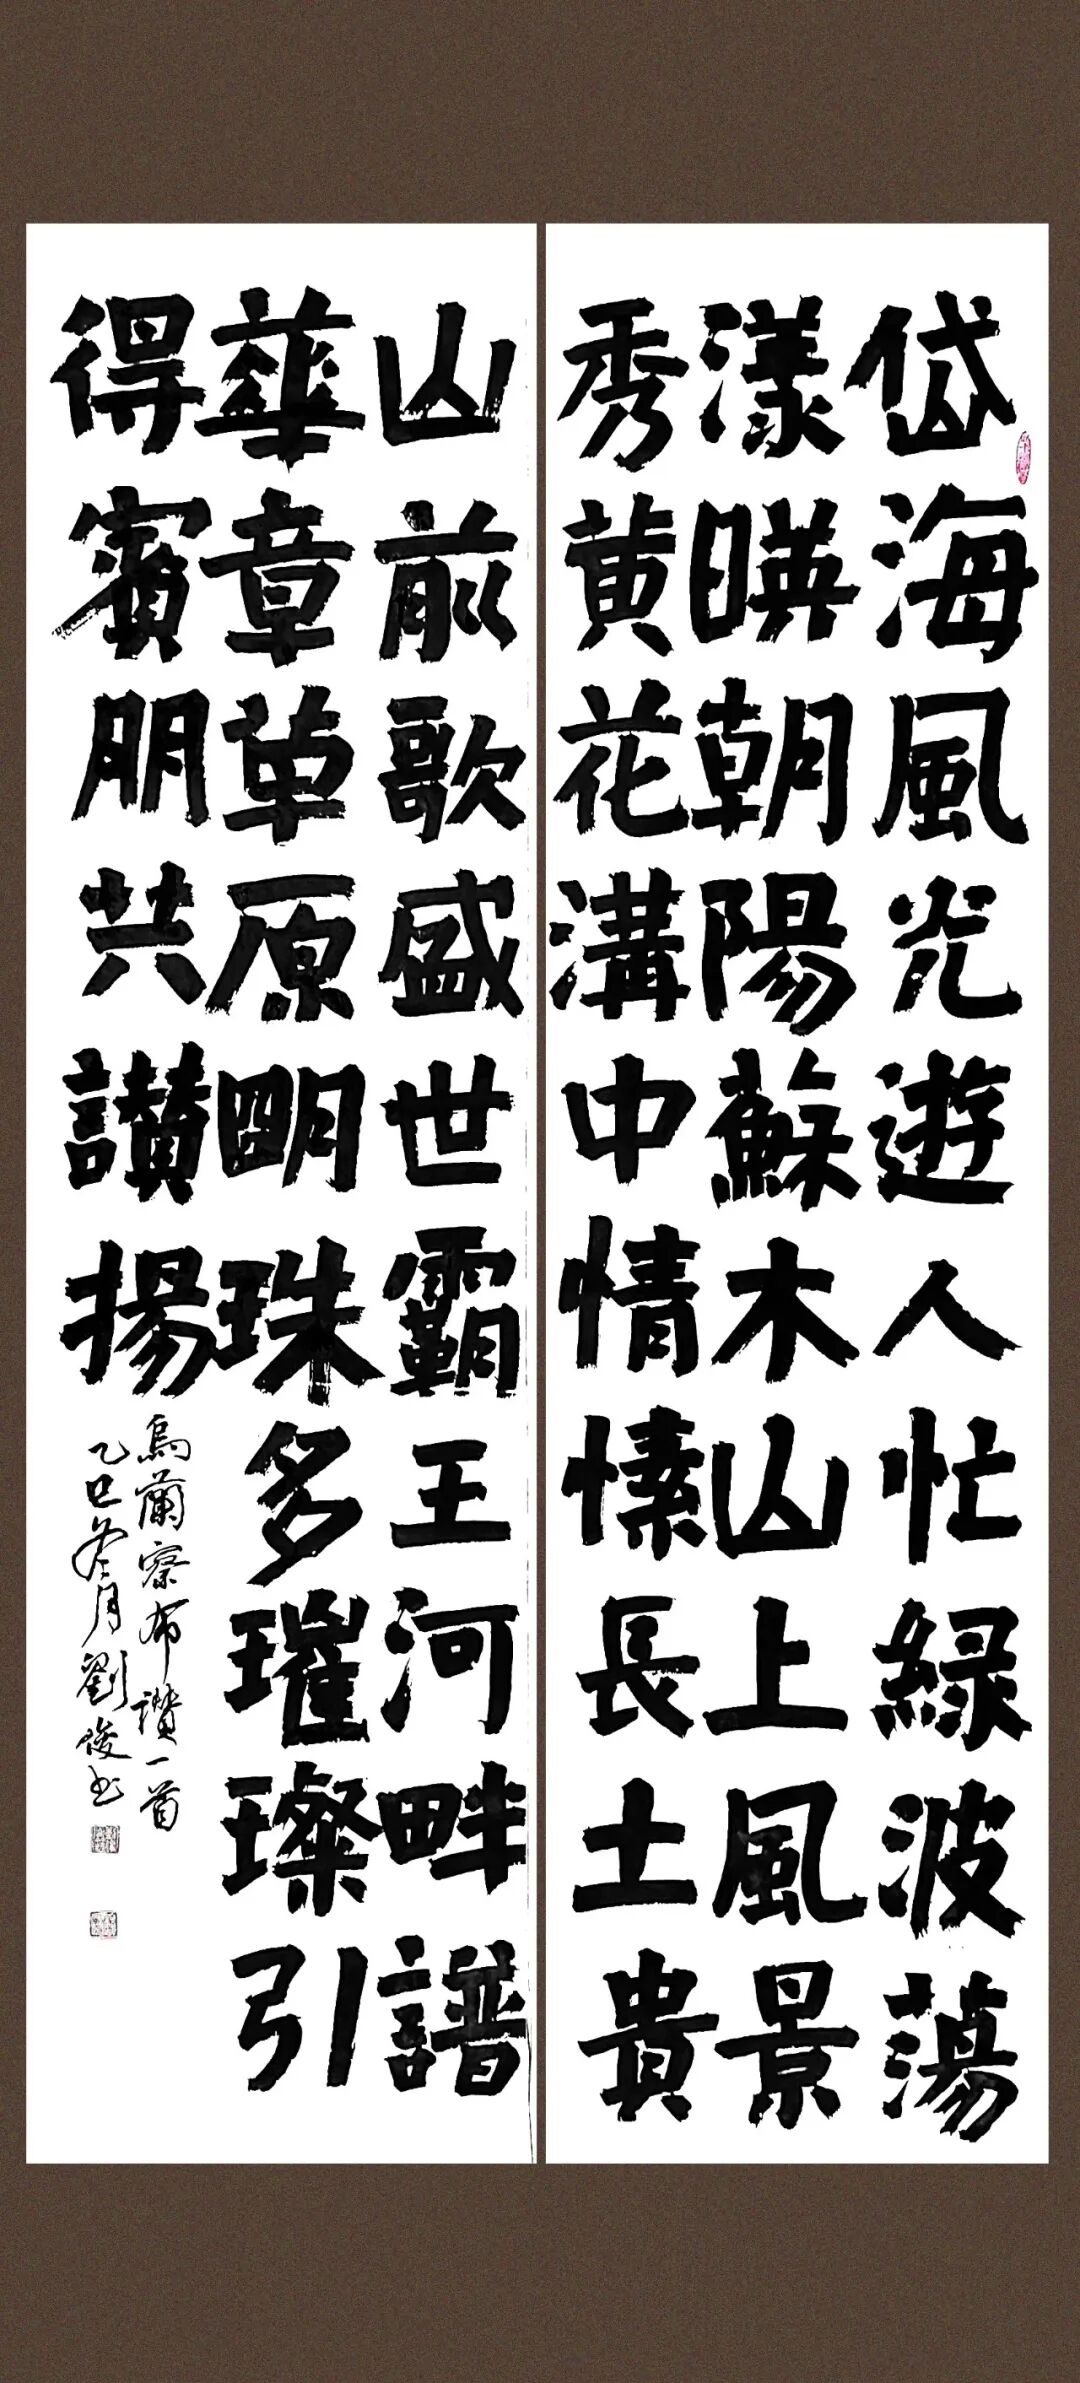 岱海風光遊人忙綠波蕩
漾暎朝陽蘇木山上風景
秀黄花溝中情愫長土貴
山前歌盛世霸王河畔譜
華章草原明珠多璀璨引
得賓朋共讚揚
烏蘭察布讚一首
乙巳冬月劉俊书